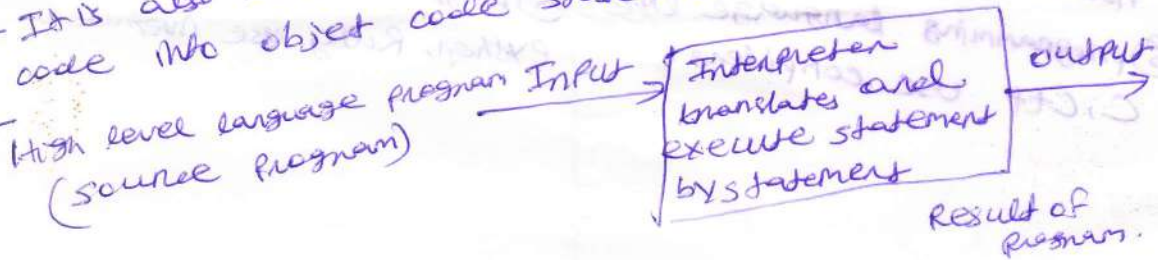 - It is
code into objet code
High level language program Input
(source program)
Interpreter
translates and
execute statement
by statement
output
Result of
program.